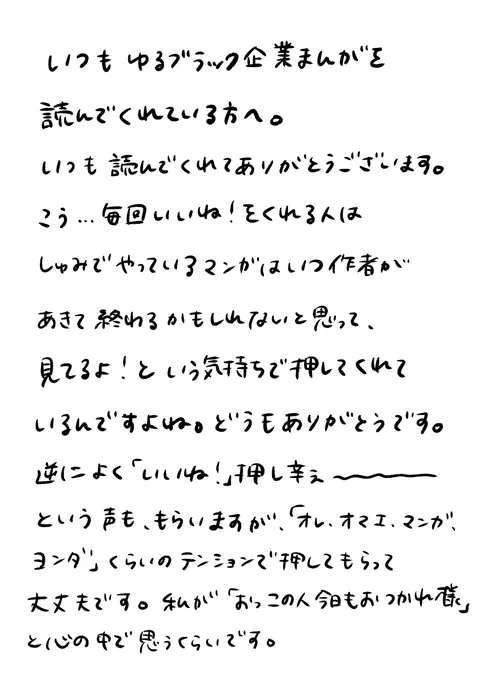 いつも ゆるブラック企業まんがを
読んでくれている方へ。
いつも 読んでくれてありがとうございます。
こう…毎回いいね!をくれる人は
しゅみでやっているマンガはいつ作者が
あきて終わるかもしれないと思って、
見てるよ!という気持ちで押してくれて
いるんですよね。どうもありがとうです。
逆によく「いいね!」押し辛ぇ〜〜〜
という声も、もらいますが、「オレ、オマエ、マンガ、
ヨンダ」くらいのテンションで押してもらって
大丈夫です。私が「おっこの人今日もおつかれ様」
と心の中で思うくらいです。